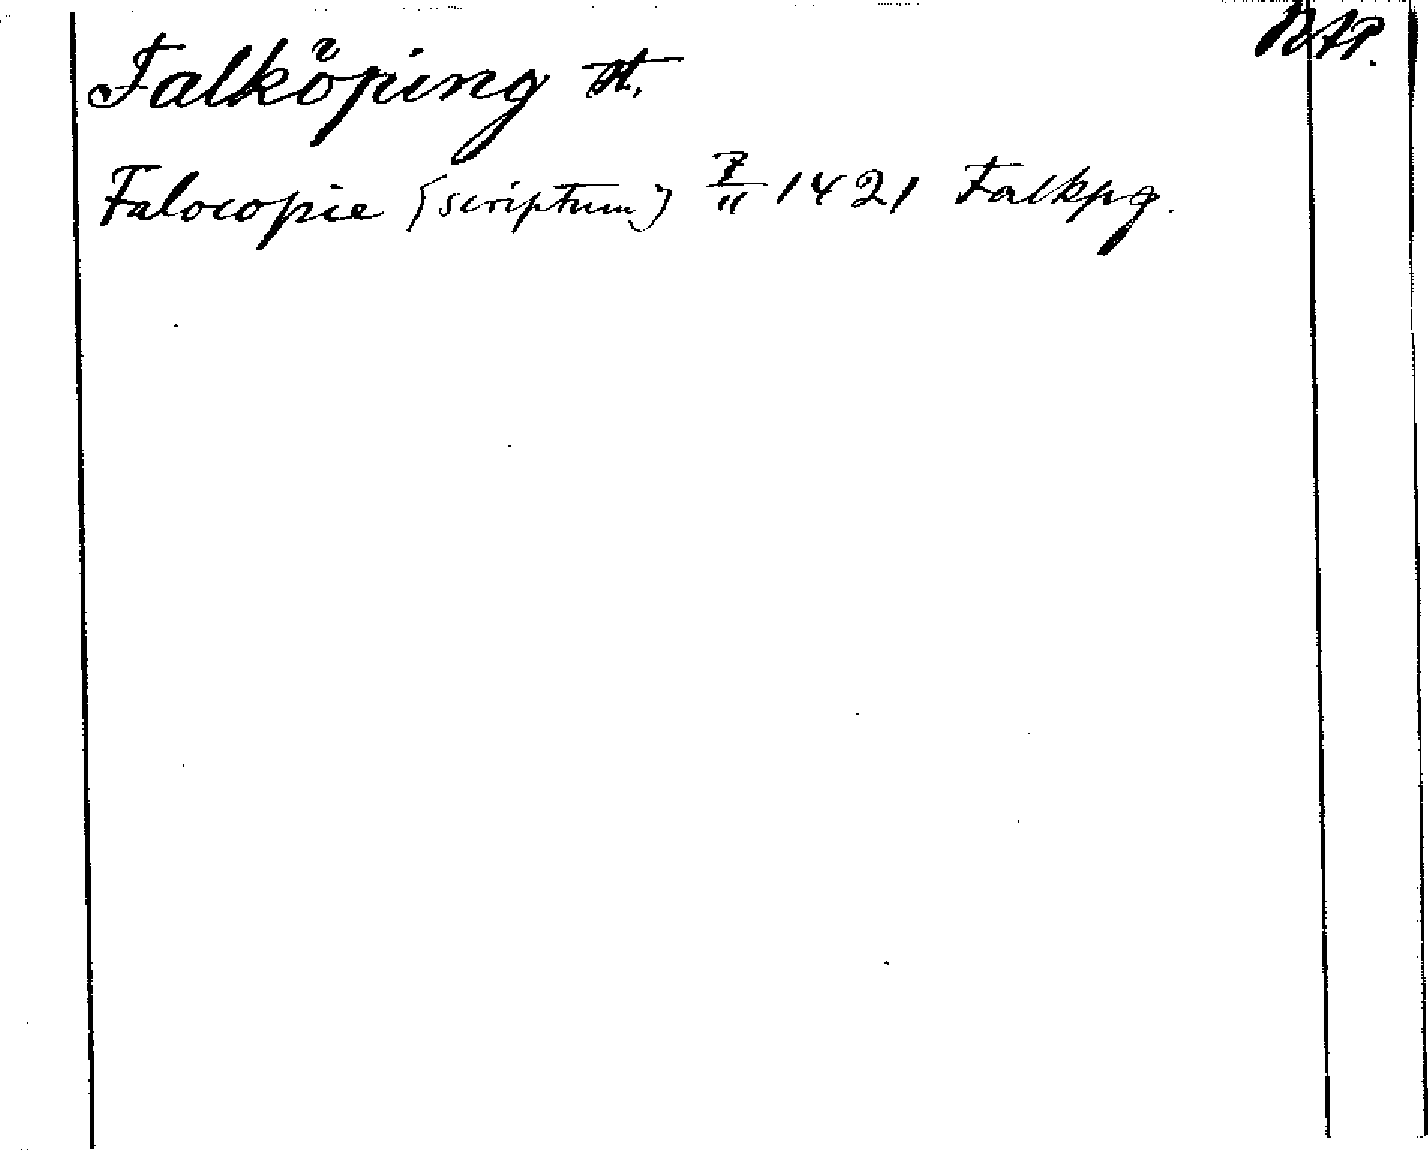 Falköping st. RAP.
Falocopie (scriptum) 7/11 1421 Falkpg.